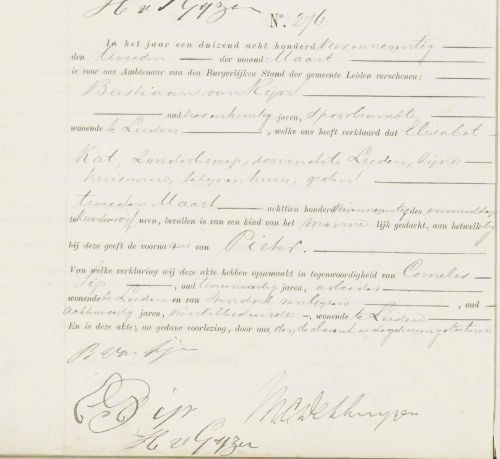 H v Gijzen
N.o 276.
In het jaar een duizend acht honderd vier en negentig
den tweeden der maand Maart
is voor ons Ambtenaar van den Burgerlijken Stand der gemeente Leiden verschenen:
Bastiaan van Rijn
oud jaren, spoorbeambte,
wonende te Leiden, welke ons heeft verklaard dat Elisabet
Kat, zonder beroep, wonende te Leiden, zijne
huisvrouw, te zijnen huize, op den
tweeden Maart achttien honderd vier en negentig des voormiddags
te uren, bevallen is van een kind van het mannelijk geslacht, aan hetwelk hij
bij deze geeft de voornaam van Pieter.
Van welke verklaring wij deze akte hebben opgemaakt in tegenwoordigheid van Cornelis
Sip, oud jaren, arbeider
wonende te Leiden en van Hendrik van Gijzen, oud
jaren, winkelbediende, wonende te Leiden
En is deze akte, na gedane voorlezing, door ons, den declarant en de getuigen geteekend
B van Rijn
C Sip
H v Gijzen